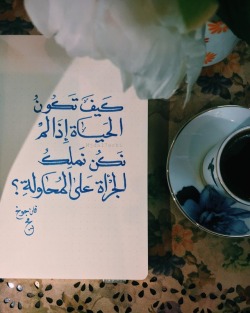 كَيفَ تَكُونُ
الحَيَاة إِذَا لَمْ
نَكُن نَملِك
الجُرأة عَلىٰ المُحَاولَةِ ؟
فان جوخ